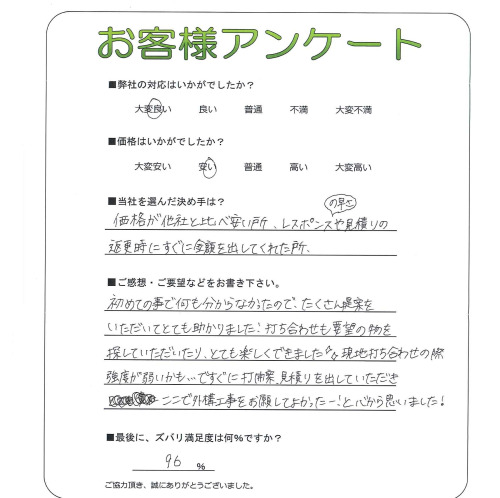 お客様アンケート
■弊社の対応はいかがでしたか？
大変良い 良い 普通 不満 大変不満
■価格はいかがでしたか？
大変安い 安い 普通 高い 大変高い
■当社を選んだ決め手は？
の早さ
価格が他社と比べ安い所、レスポンスや見積りの
返更時にすぐに金額を出してくれた所、
■ご感想・ご要望などをお書き下さい。
初めての事で何も分からなかったので、たくさん提案を
いただいてとても助かりました！打ち合わせも要望の物を
探していただいたり、とても楽しくできました 現地打ち合わせの際
強度が弱いかも…ですぐに打 案、見積りを出していただき
ここで外構工事をお願してよかったー！と心から思いました！
■最後に、ズバリ満足度は何%ですか？
96 %
ご協力頂き、誠にありがとうございました。